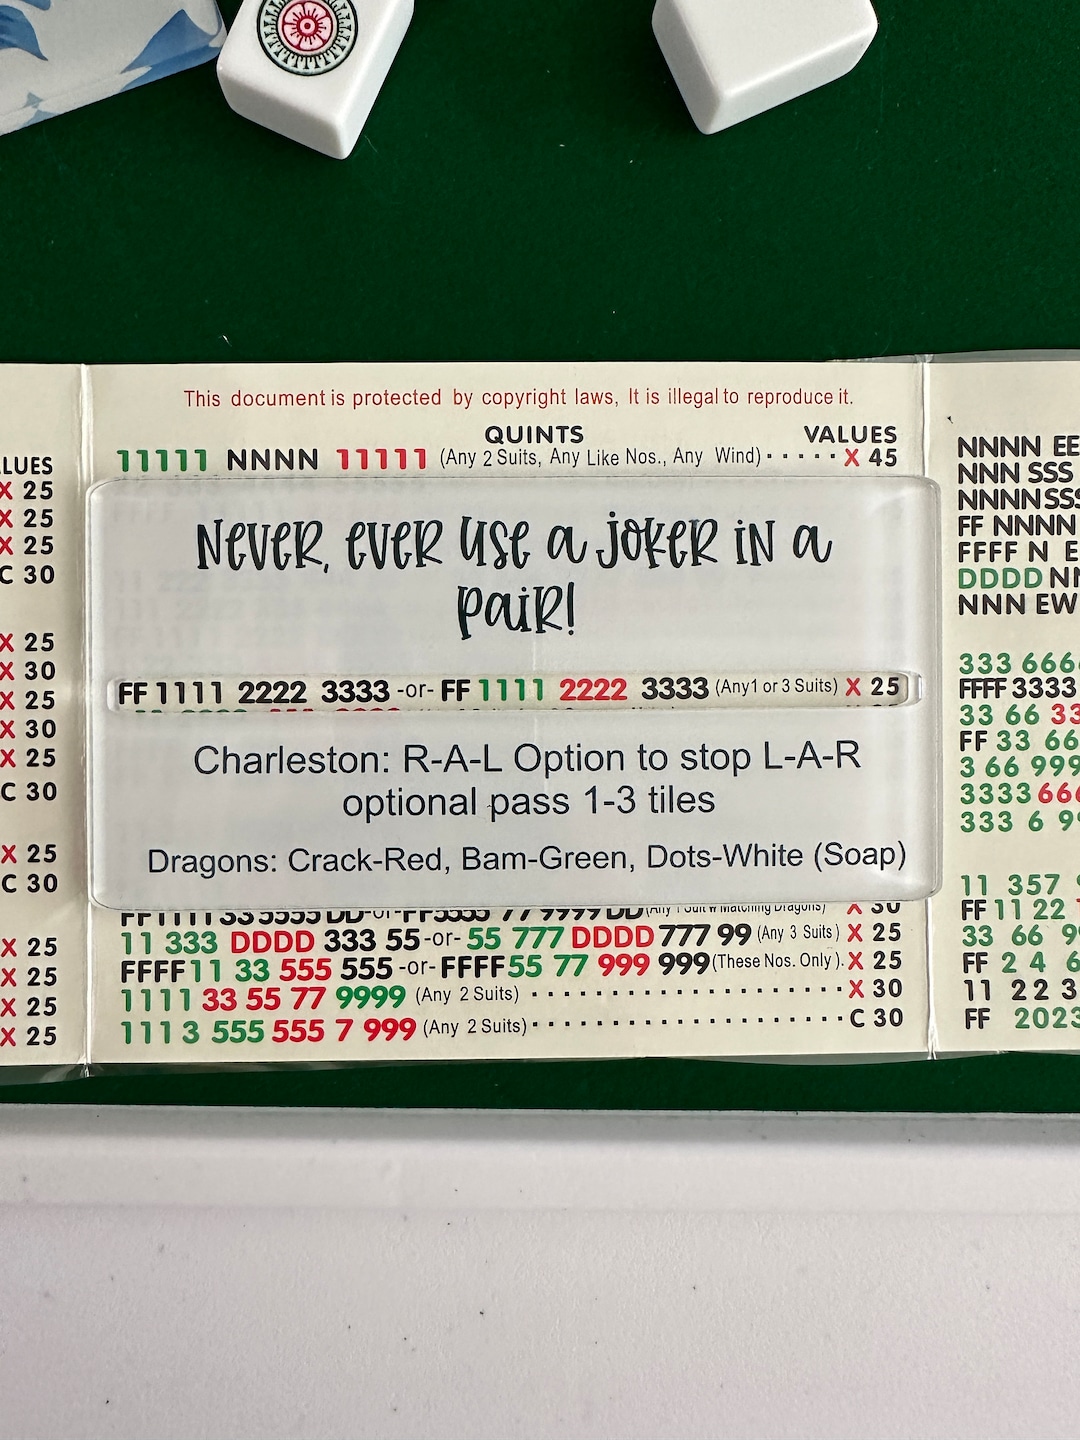 This document is protected by copyright laws, It is illegal to reproduce it.
QUINTS VALUES
11111 NNNN 11111 (Any 2 Suits, Any Like Nos., Any Wind) ..... X 45
Never, ever use a joker in a
pair!
FF 1111 2222 3333 -or- FF 1111 2222 3333 (Any 1 or 3 Suits) X 25
Charleston: R-A-L Option to stop L-A-R
optional pass 1-3 tiles
Dragons: Crack-Red, Bam-Green, Dots-White (Soap)
FF 1111 33 5555 DD -or- FF 5555 77 9999 DD (Any 1 Suit w Matching Dragons) X 30
11 333 DDDD 333 55 -or- 55 777 DDDD 777 99 (Any 3 Suits) X 25
FFFF 11 33 555 555 -or- FFFF 55 77 999 999 (These Nos. Only). X 25
1111 33 55 77 9999 (Any 2 Suits) ........................ X 30
111 3 555 555 7 999 (Any 2 Suits) ........................ C 30
X 25
X 25
X 25
C 30
X 25
X 30
X 25
X 30
X 25
C 30
X 25
C 30
X 25
X 25
X 25
X 25
NNNN EE
NNN SSS
NNNN SSS
FF NNNN
FFFF N E
DDDD N
NNN EW
333 666
FFFF 3333
33 66 33
FF 33 66
3 66 999
3333 666
333 6 9
11 357
FF 11 22
33 66 9
FF 2 4 6
11 22 3
FF 2023